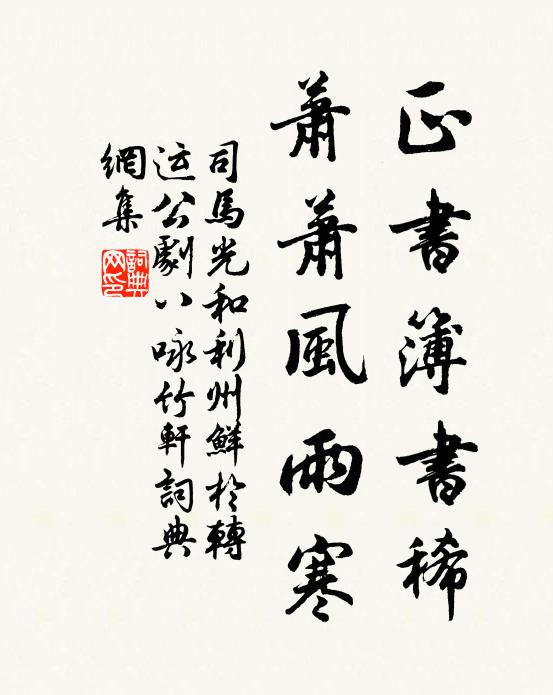 正書簿書稀
蕭蕭風雨寒
司馬光和利州鮮於轉
运公劇八咏竹軒詞典
網集
詞典
网印